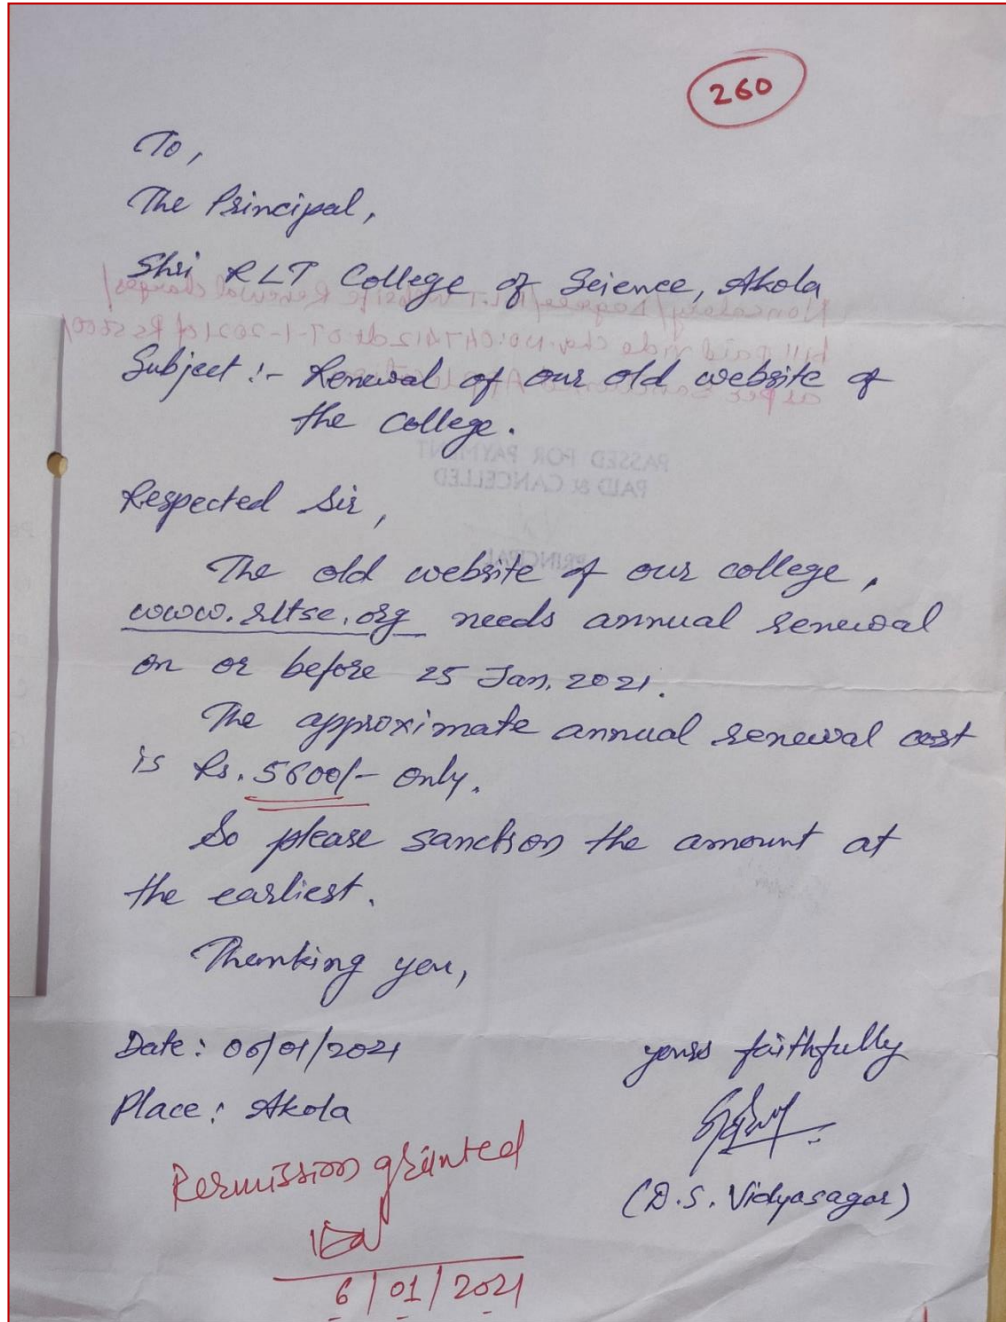 260
To,
The Principal,
Shri RLT College of Science, Akola
Subject :- Renewal of our old website of
the College.
Respected Sir,
The old website of our college,
www.rltsc.org needs annual renewal
on or before 25 Jan, 2021.
The approximate annual renewal cost
is Rs. 5600/- only.
So please sanction the amount at
the earliest.
Thanking you,
Date: 06/01/2021
yours faithfully
Place: Akola
(D.S. Vidyasagar)
Permission granted
6/01/2021
PASSED FOR PAYMENT
PAID & CANCELLED
PRINCIPAL